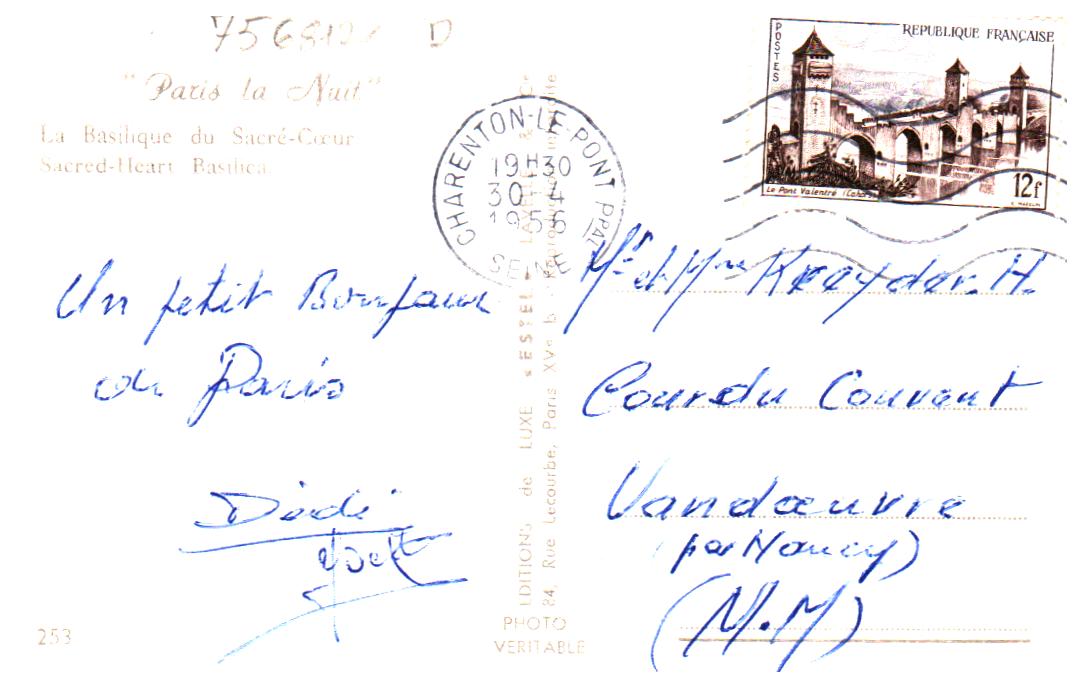 7568121 D
"Paris la Nuit"
La Basilique du Sacré-Cœur
Sacred-Heart Basilica
Un petit Bonjour
de Paris
Dédé
253
EDITIONS de LUXE «ESTEL»
24, Rue Lecourbe, Paris XVe
PHOTO
VERITABLE
CHARENTON-LE-PONT PPAL
19H30
30-4
1956
SEINE
POSTES
REPUBLIQUE FRANÇAISE
Le Pont Valentré (Cahors)
12f
Mr et Mme Kreyder. H.
Cour du Couvent
Vandœuvre
(par Nancy)
(M.M)